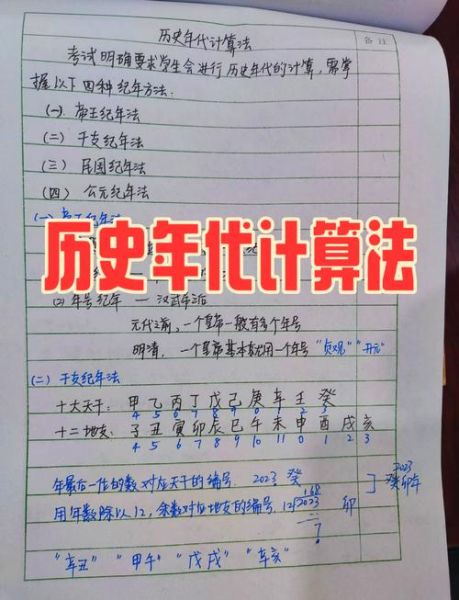 历史年代计算法
备注
考试明确要求学生会进行历史年代的计算，需掌
握以下四种纪年方法：
(一) 帝王纪年法
(二) 干支纪年法
(三) 民国纪年法
(四) 公元纪年法
(一)
历史年代计算法
(2) 年号纪年 — 汉武帝后
元代之前，一个皇帝一般有多个年号
明清，一个皇帝基本就用一个年号 "贞观" "开元"
(二) 干支纪年法
十大天干： 甲 乙 丙 丁 戊 己 庚 辛 壬 癸
4 5 6 7 8 9 0 1 2 3
十二地支： 子 丑 寅 卯 辰 巳 午 未 申 酉 戌 亥
4 5 6 7 8 9 10 11 0 1 2 3
年最后一位的数对应天干的编号. 2023 癸
用年数除以12，余数对应地支的编号. 12 2023 168 卯
7
2023
癸卯年
"辛丑" "甲午" "戊戌" "辛亥"